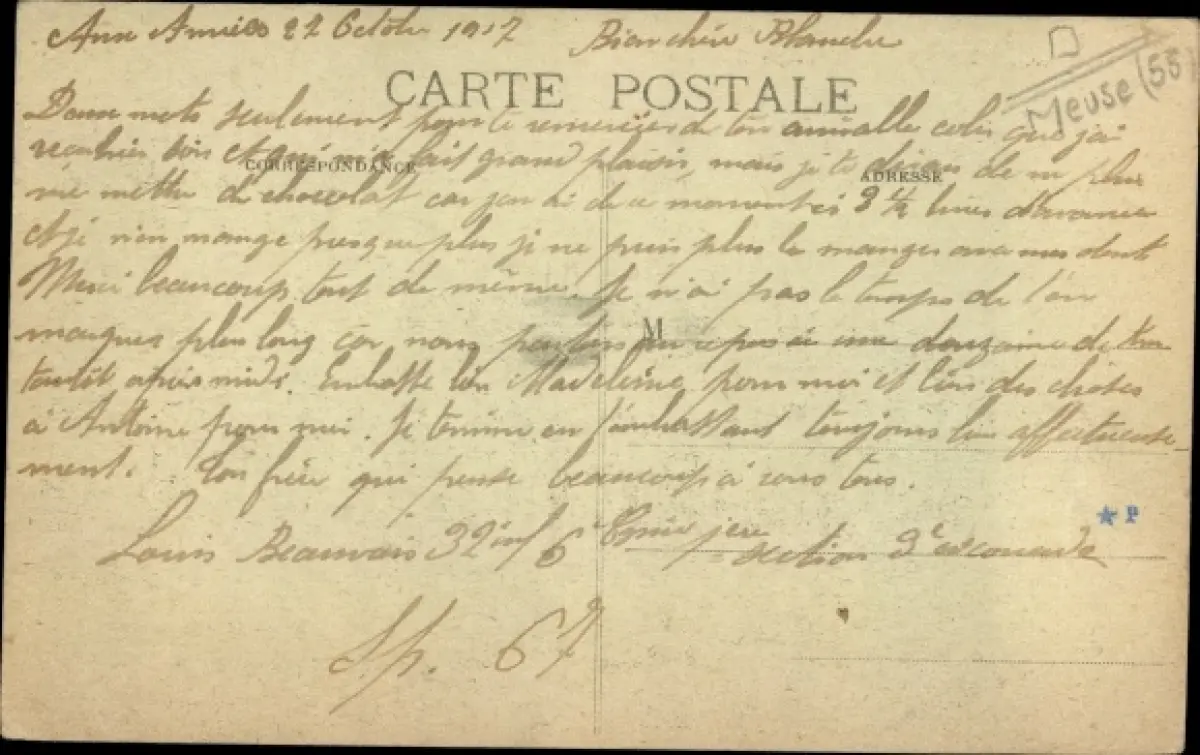 Aux Armées 22 Octobre 1917 Bien chère Blanche
Meuse (55)
CARTE POSTALE
Deux mots seulement pour te remercier de ton aimable colis que j'ai
CORRESPONDANCE
ADRESSE
fait grand plaisir, mais je te dirais de ne plus
me mettre de chocolat car j'en ai de ce moment ci 3 1/2 livres d'avance
et je n'en mange presque plus je ne puis plus le manger avec mes dents
Merci beaucoup tout de même. Je n'ai pas le temps de t'en
marquer plus long car nous partons au repos à une douzaine de
tantôt après midi. Embrasse bien Madeleine pour moi et bien des choses
M
à Antoine pour moi. Je termine en t'embrassant toujours bien affectueuse
ment. Ton frère qui pense beaucoup à vous tous.
Louis Beauvais 32 inf 6e Cnie 1ere section 3e escouade
S.p. 67
★ P